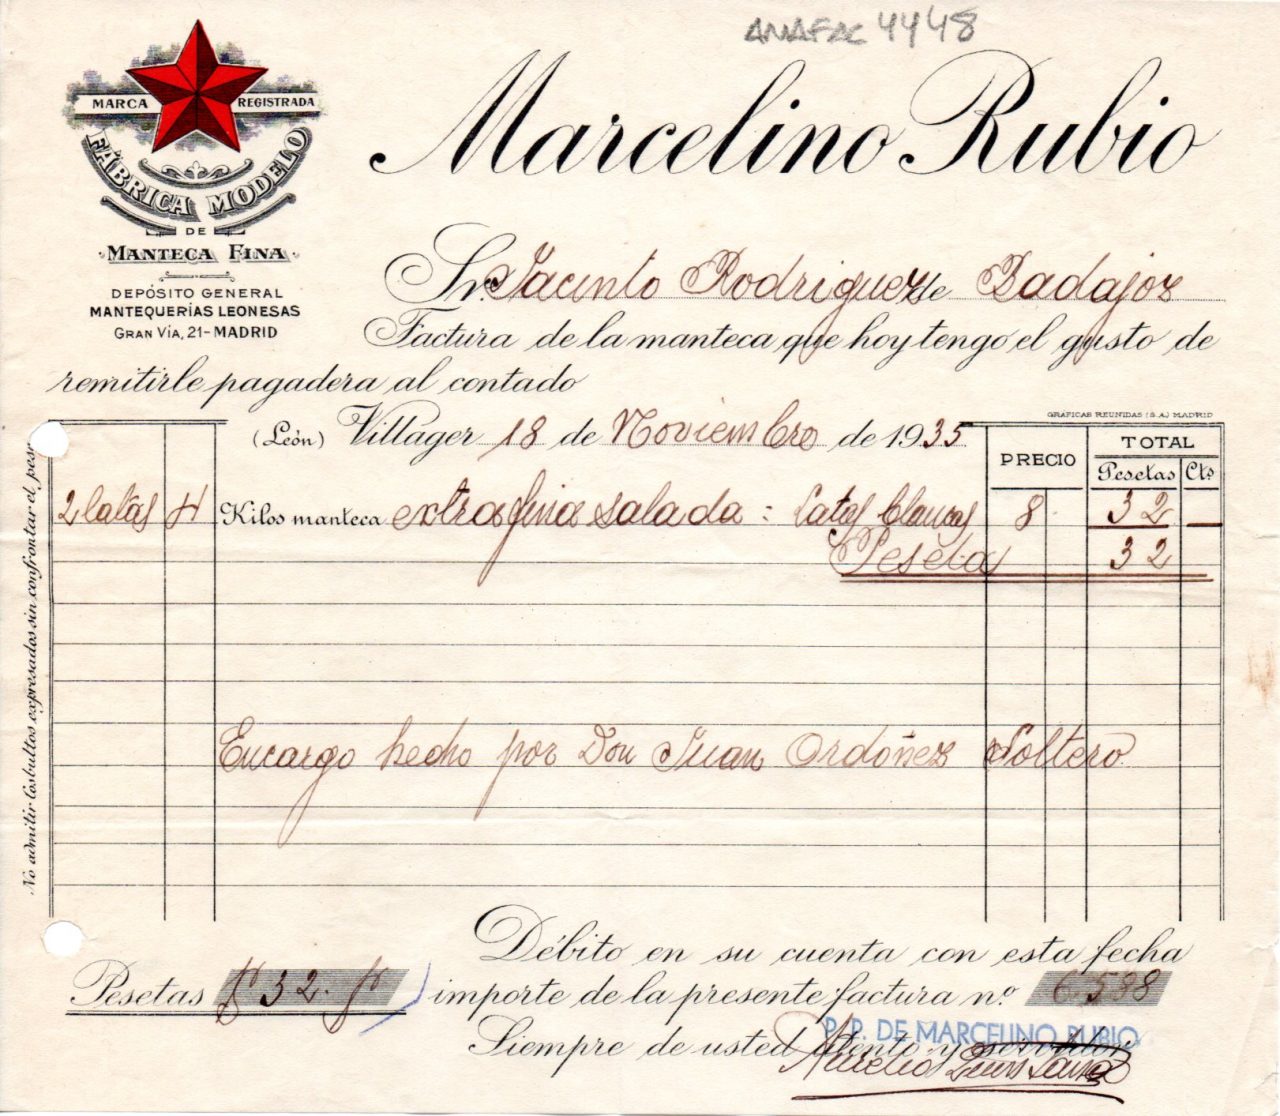 AMAFAC 4448
MARCA REGISTRADA
FÁBRICA MODELO
DE
MANTECA FINA
DEPÓSITO GENERAL
MANTEQUERÍAS LEONESAS
GRAN VÍA, 21-MADRID
Marcelino Rubio
Sr. Jacinto Rodriguez de Badajoz
Factura de la manteca que hoy tengo el gusto de
remitirle pagadera al contado
GRAFICAS REUNIDAS (S.A.) MADRID
(León) Villager 18 de Noviembro de 1935
PRECIO TOTAL
Pesetas Cts
2 latas 4 Kilos manteca extrafina salada: latas blancas 8 32
Pesetas 32
Encargo hecho por Don Juan Ordóñez Soltero
No admitir los bultos expresados sin confrontar el peso
Débito en su cuenta con esta fecha
Pesetas # 32. # importe de la presente factura nº 6.588
Siempre de usted atento y servidor
P. P. DE MARCELINO RUBIO
Aurelio